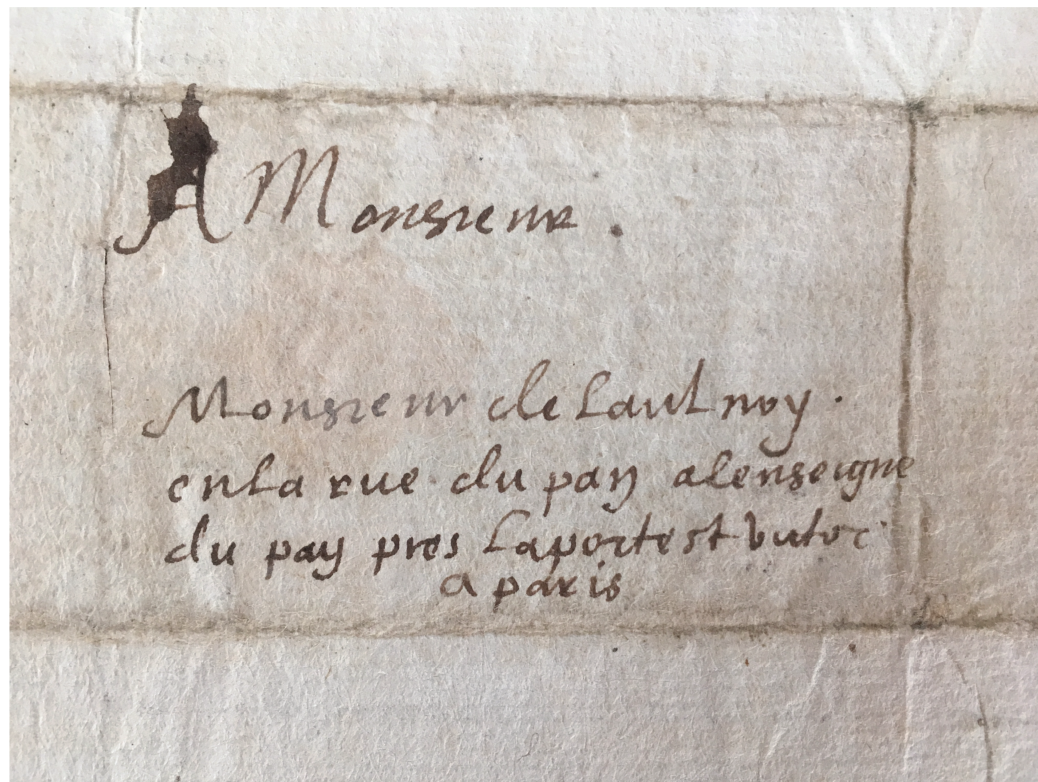 A Monsieur .
Monsieur de Laulnoy .
en la rue du pan a lenseigne
du pan pres la porte st victor
a paris